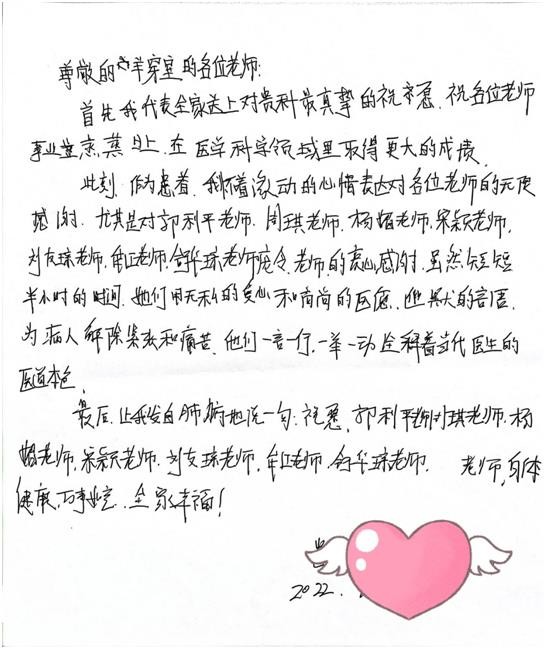 尊敬的羊穿室的各位老师:
首先我代表全家送上对贵科最真挚的祝愿. 祝各位老师
事业蒸蒸日上. 在医学科学领域里取得更大的成绩.
此刻, 作为患者, 我怀着激动的心情表达对各位老师的无限
感谢, 尤其是对郭利平老师. 周琪老师. 杨娟老师. 宋颖老师.
刘友琼老师. 老师. 舒华琼老师 老师的衷心感谢. 虽然短短
半小时的时间. 她们用无私的爱心和高尚的医德. 的言语.
为病人解除紧张和痛苦. 他们一言一行. 一举一动全释着当代医生的
医道本色.
最后, 让我发自肺腑地说一句: 祝愿, 郭利平 琪老师. 杨
娟老师. 宋颖老师. 刘友琼老师. 老师. 舒华琼老师. 老师, 身体
健康, 万事 . 全家幸福!
2022.